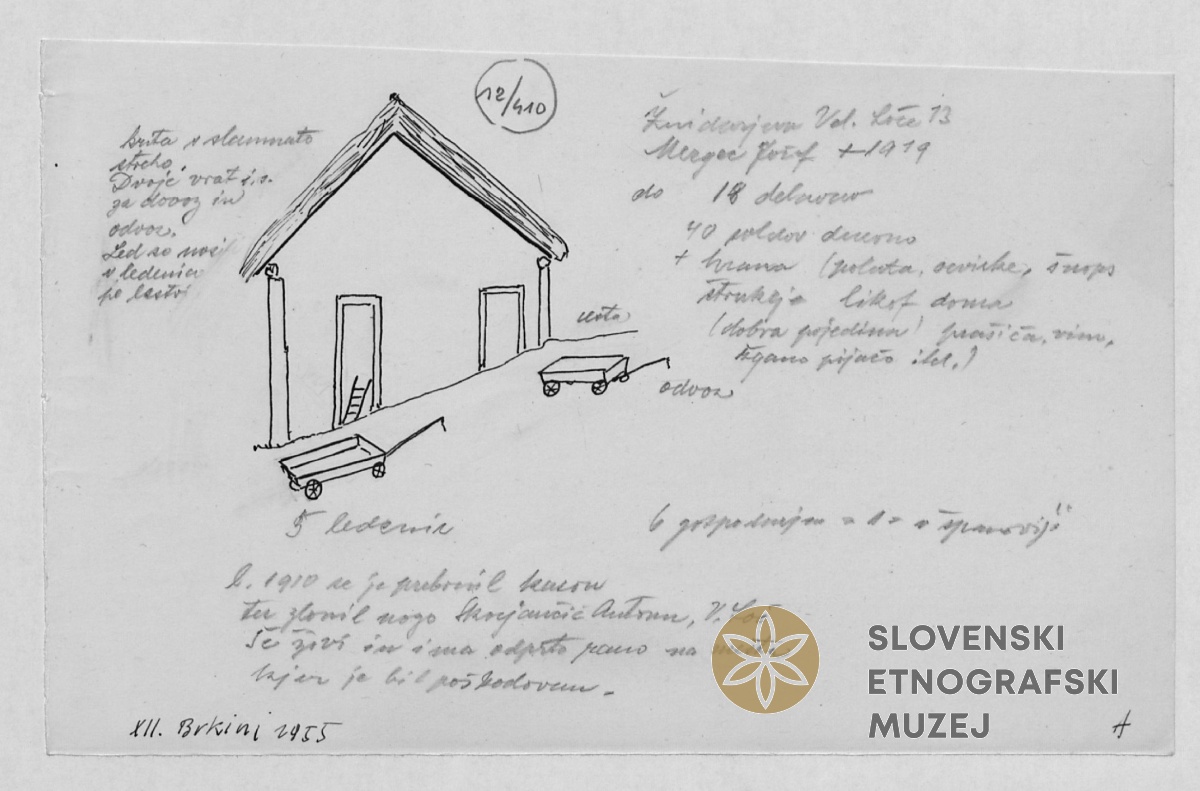 12/410
krita s slamnato
streho.
Dvoje vrat
za dovoz in
odvoz.
Led so nosi
v ledenico
po lestvi
Žnidarjeva Vel. Loče 13
Mezgec Jožef +1919
do 18 delavcev
40 soldov dnevno
+ hrana (polenta, ocvirke, šnops
štruklje likof doma
(dobra pojedina prašiča, vino,
žgano pijačo itd.)
cesta
odvoz
5 ledenic
6 gospodarjev = 1 = v
L. 1910 se je
ter zlomil nogo Škocjančič Anton, V. Loče
še živi in ima odprto rano na mestu
kjer je bil poškodovan.
XII. Brkini 1955
A
SLOVENSKI
ETNOGRAFSKI
MUZEJ